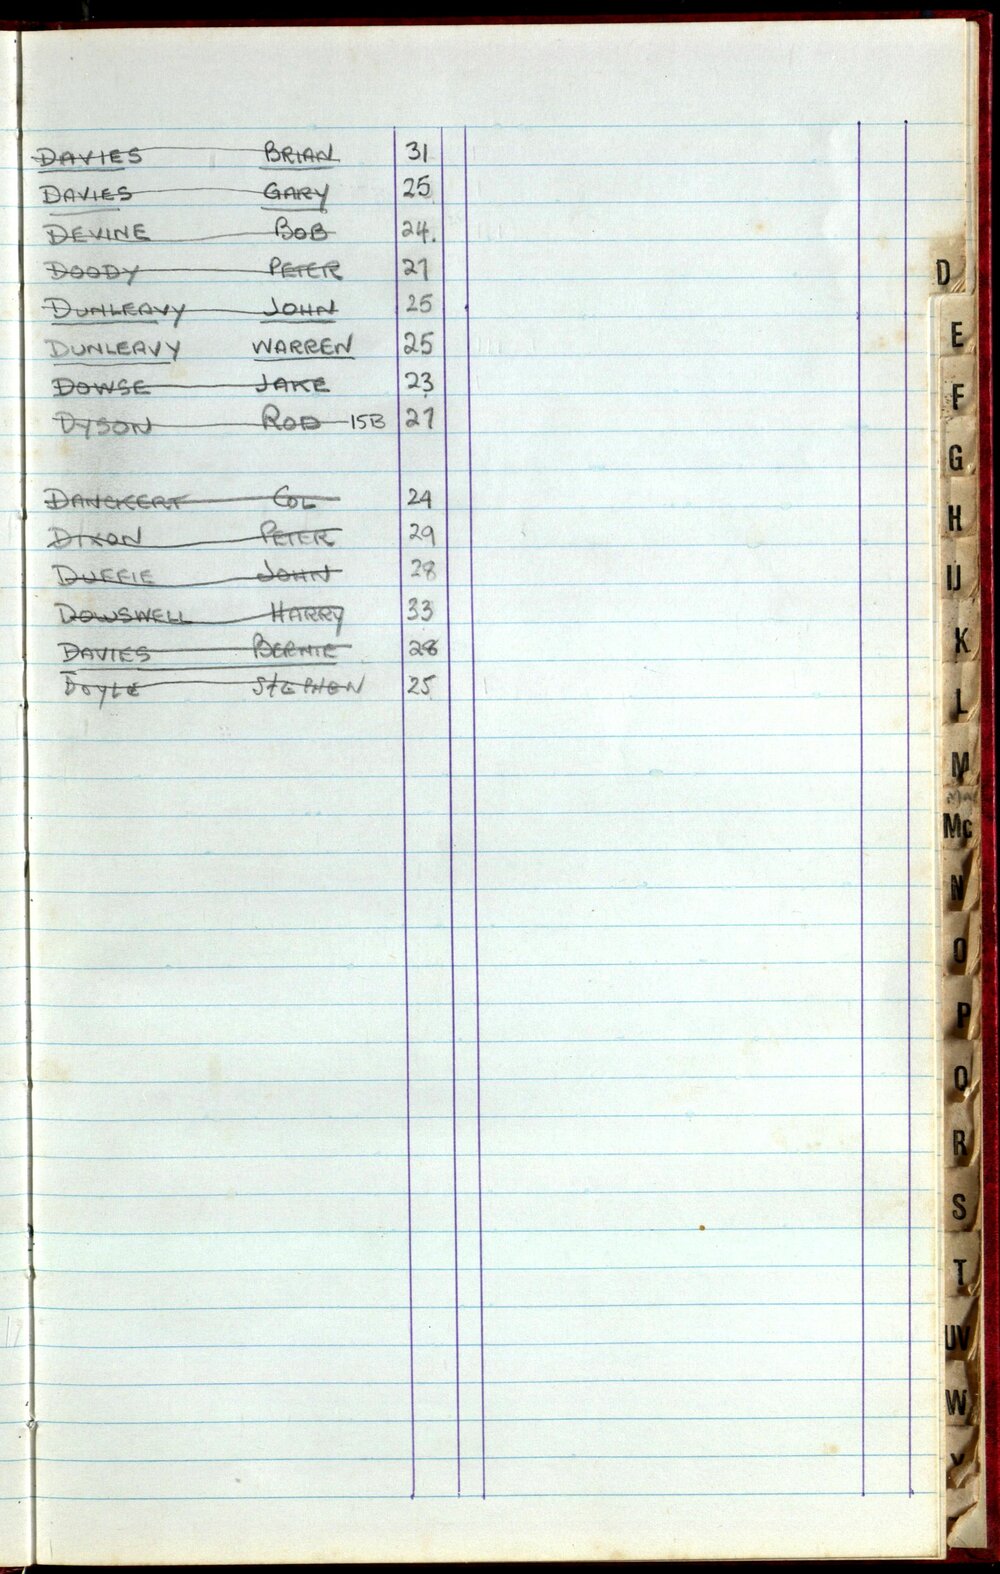 DAVIES BRIAN 31
DAVIES GARY 25
DEVINE BOB 24.
DOODY PETER 27
DUNLEAVY JOHN 25
DUNLEAVY WARREN 25
DOWSE JAKE 23
DYSON ROD 15B 27
DANCKERT COL 24
DIXON PETER 29
DUFFIE JOHN 28
DOWSWELL HARRY 33
DAVIES BERNIE 28
DOYLE STEPHEN 25
D
E
F
G
H
IJ
K
L
M
Mc
N
O
P
Q
R
S
T
UV
W